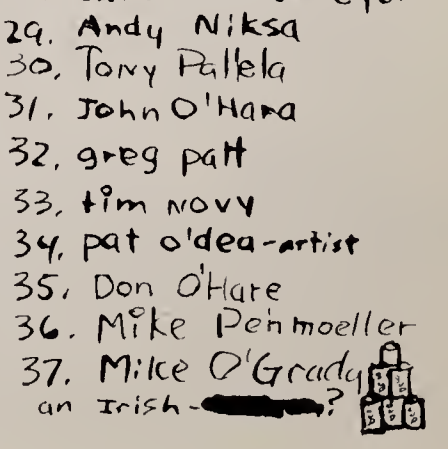 29. Andy Niksa
30. Tony Pallela
31. John O'Hara
32. greg patt
33. tim NOVY
34. pat o'dea-artist
35. Don O'Hare
36. Mike Penmoeller
37. Mike O'Grady
an Irish- ?